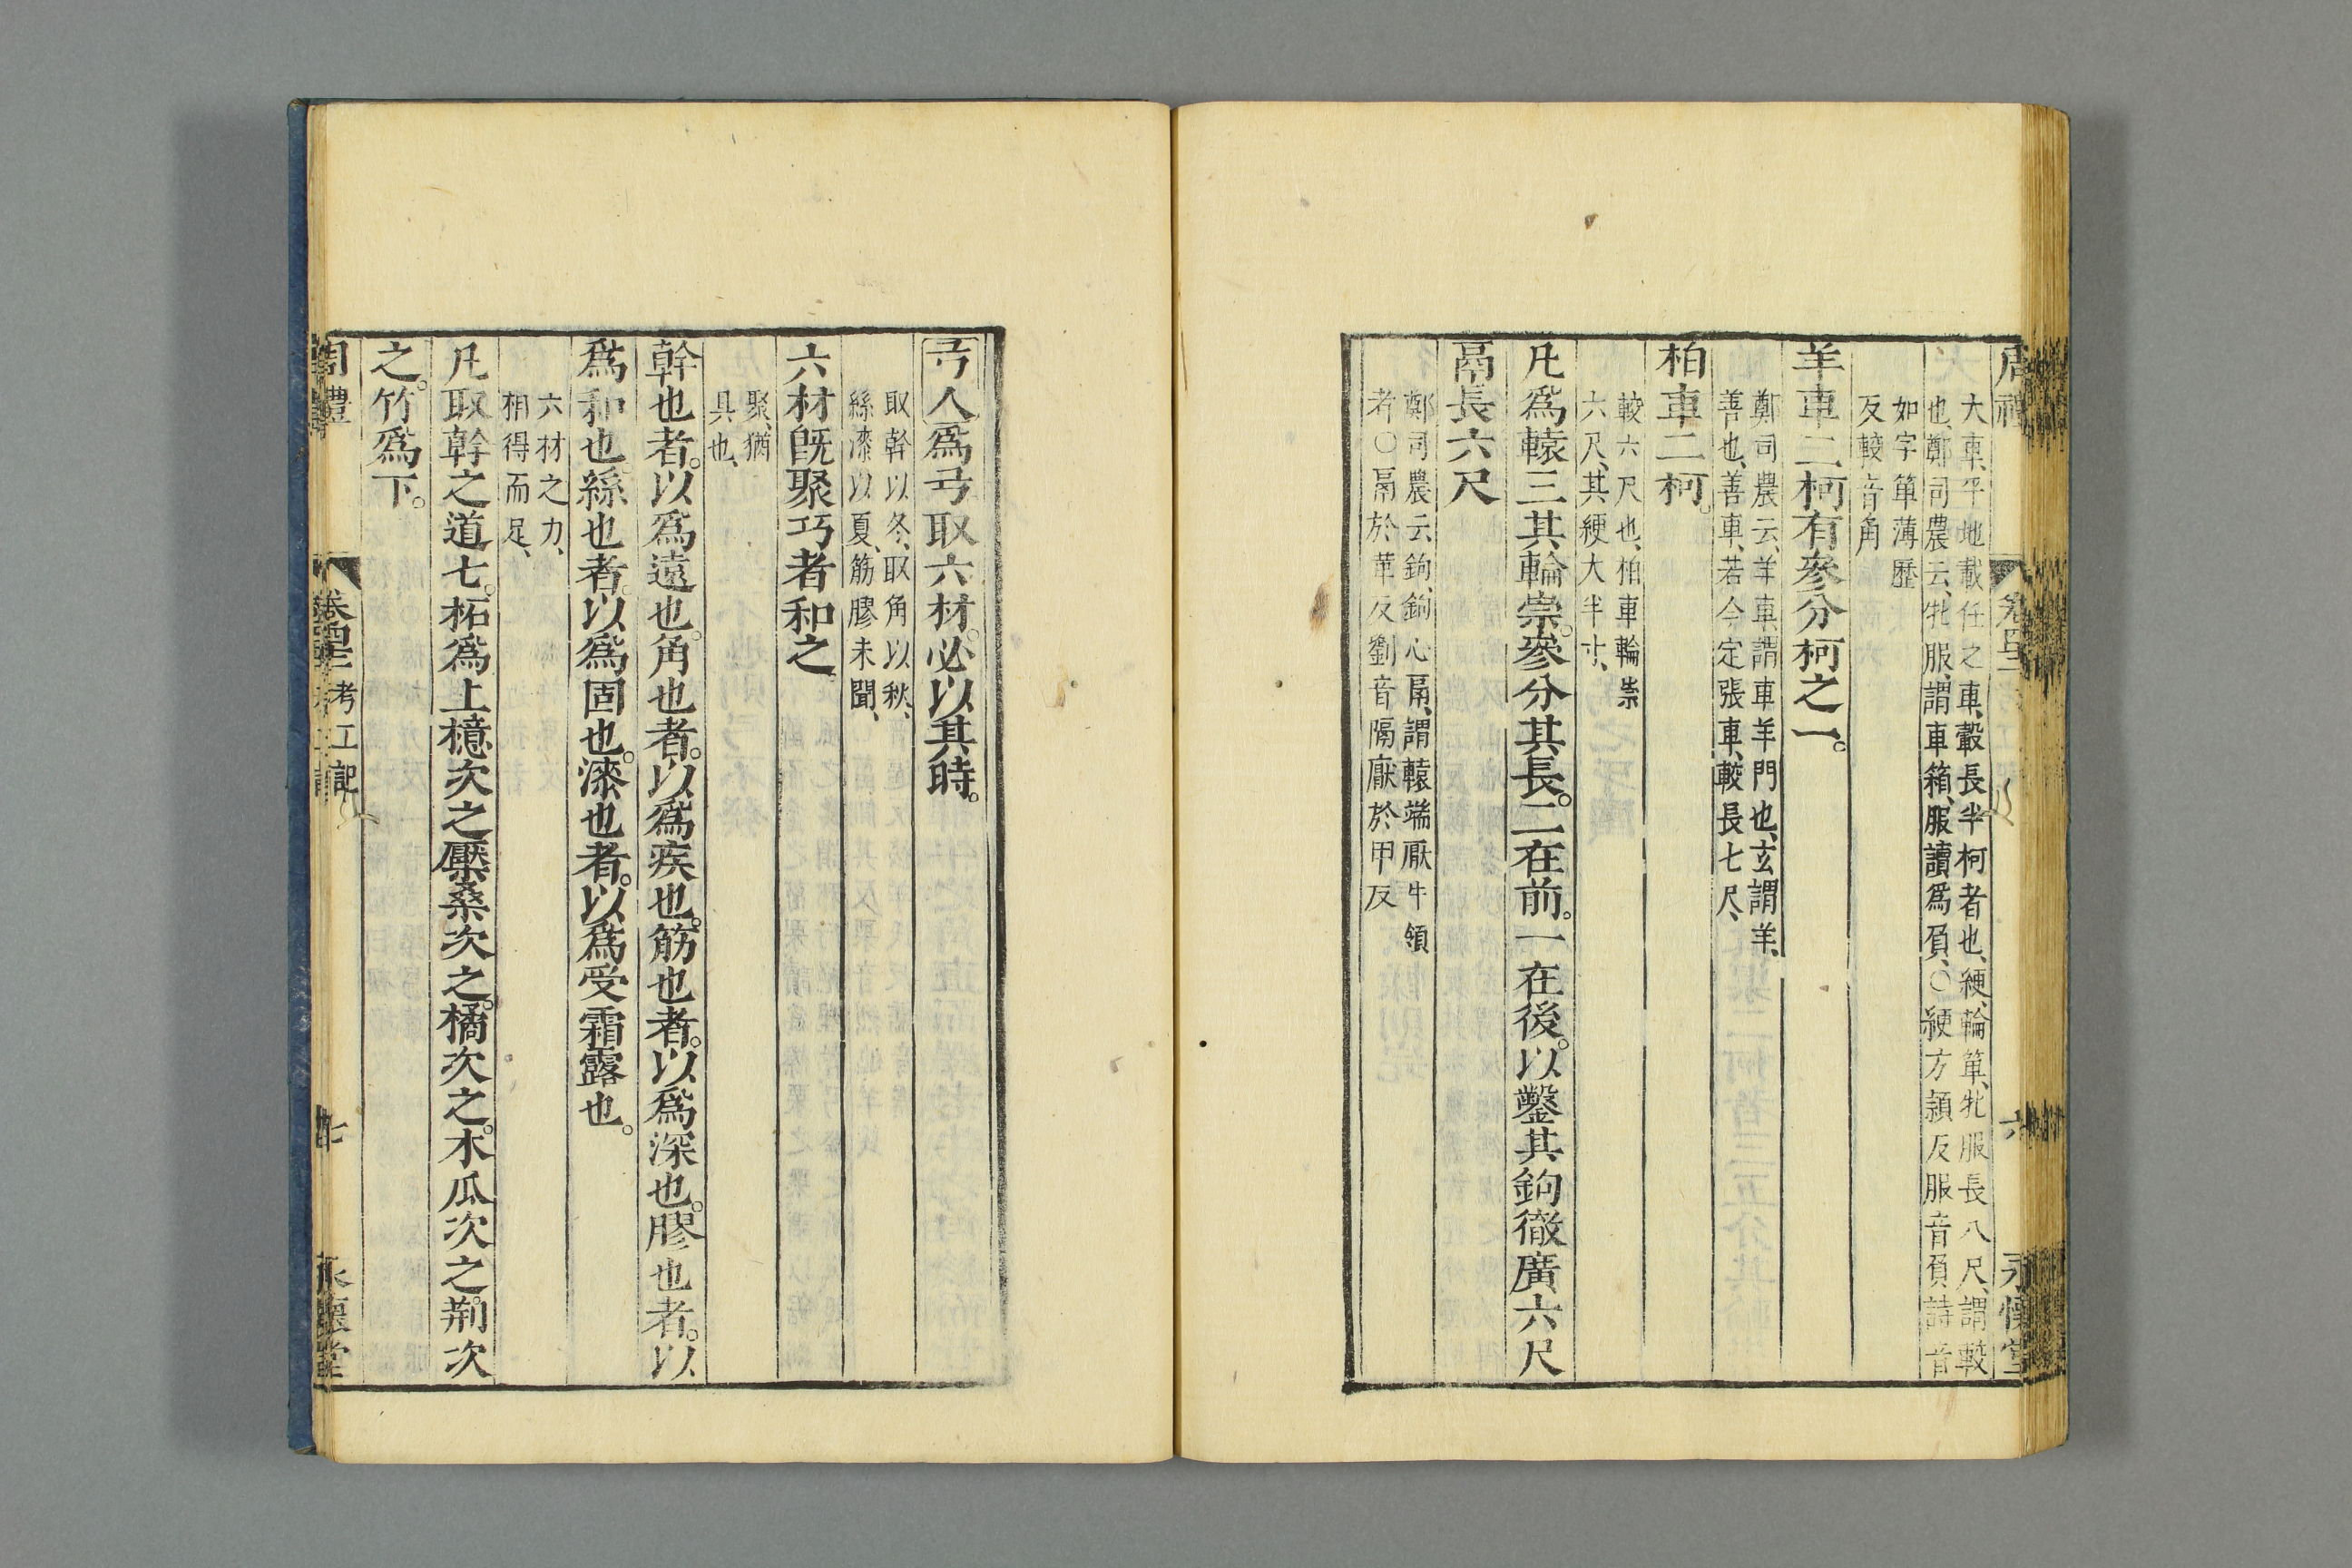 大車、平地載任之車、轂長半柯者也、綆、輪箄、牝服長八尺、謂較
也、鄭司農云、牝服、謂車箱、服讀爲負、○綆方潁反服音負詩音
如字箄薄歷
反較音角
羊車二柯有參分柯之一。
鄭司農云、羊車、謂車羊門也、玄謂羊、
善也、善車、若今定張車、較長七尺、
柏車二柯。
較六尺也、柏車輪崇
六尺、其綆大半寸、
凡爲轅三其輪崇。參分其長。二在前。一在後。以鑿其鉤徹廣六尺
鬲長六尺
鄭司農云、鉤、鉤心、鬲、謂轅端厭牛領
者○鬲於革反劉音隔厭於甲反
周禮
卷
六
永懷堂
弓人爲弓取六材。必以其時。
取幹以冬、取角以秋、
絲漆以夏、筋膠未聞、
六材旣聚巧者和之
聚、猶
具也、
幹也者。以爲遠也。角也者。以爲疾也。筋也者。以爲深也。膠也者。以
爲和也。絲也者。以爲固也。漆也者。以爲受霜露也。
六材之力、
相得而足、
凡取幹之道七。柘爲上檍次之。檿桑次之。橘次之。木瓜次之。荆次
之。竹爲下。
周禮
考工記
七
永懷堂